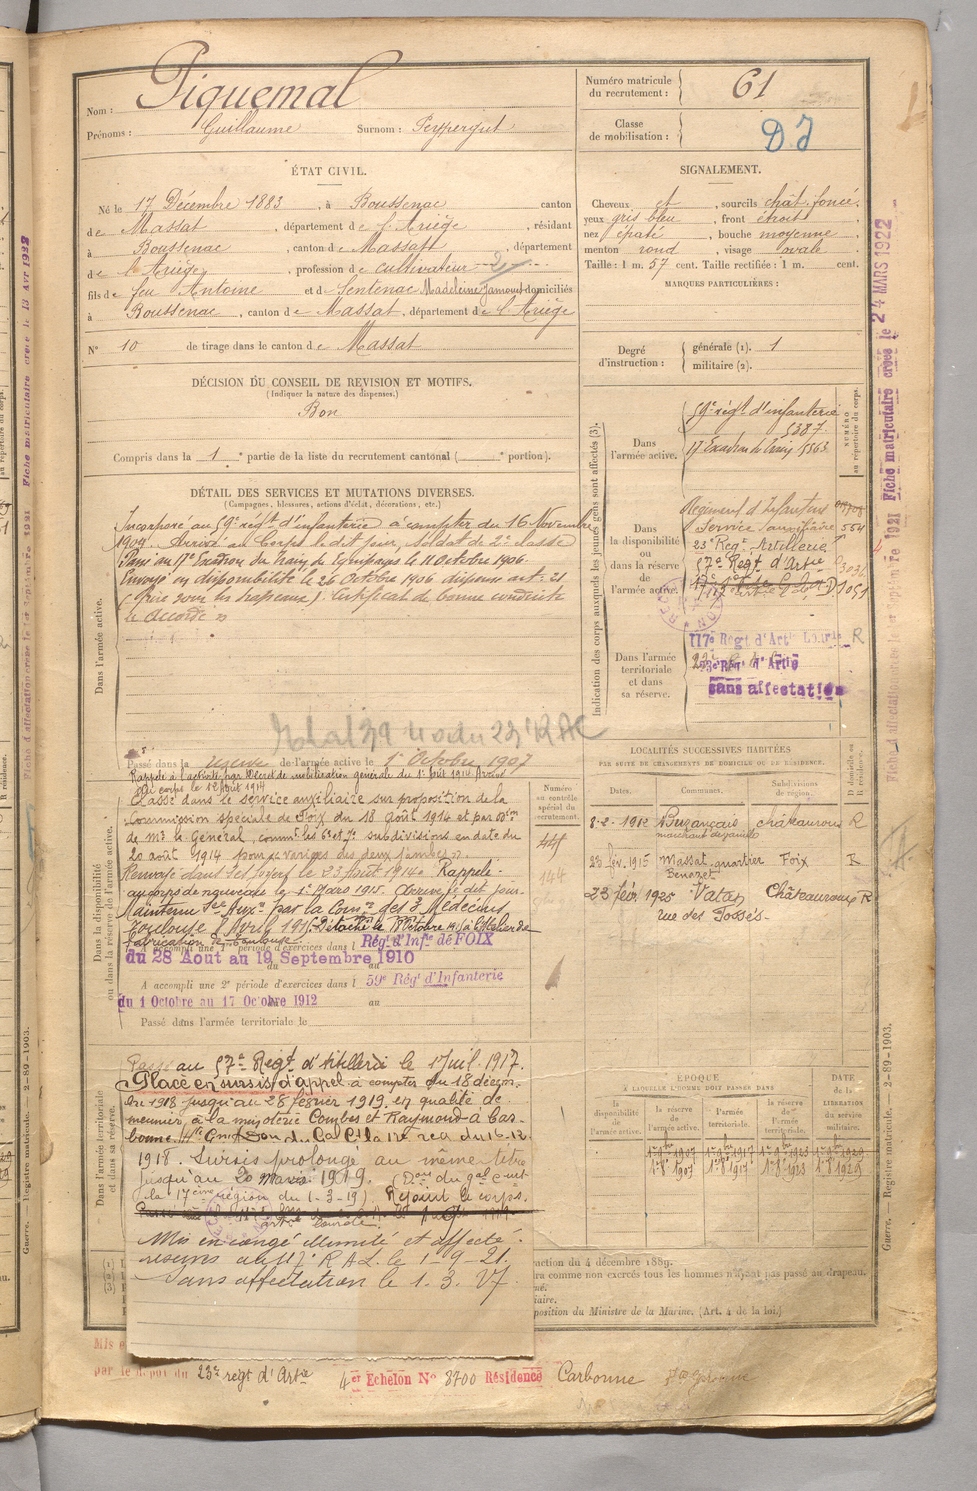 Nom : Piquemal
Prénoms : Guillaume Surnom : Peypergut
Numéro matricule du recrutement : 61
Classe de mobilisation :
ÉTAT CIVIL.
Né le 17 Décembre 1883, à Boussenac canton
de Massat, département de l'Ariège, résidant
à Boussenac, canton de Massat, département
de l'Ariège, profession de cultivateur
fils de feu Antoine et de Sentenac Madeleine domiciliés
à Boussenac, canton de Massat, département de l'Ariège
N° 10 de tirage dans le canton de Massat
SIGNALEMENT.
Cheveux et, sourcils chât. foncé,
yeux gris bleu, front étroit,
nez épaté, bouche moyenne,
menton rond, visage ovale.
Taille : 1 m. 57 cent. Taille rectifiée : 1 m. cent.
MARQUES PARTICULIÈRES :
Degré d'instruction : générale (1). 1
militaire (2).
DÉCISION DU CONSEIL DE REVISION ET MOTIFS.
(Indiquer la nature des dispenses.)
Bon
Compris dans la 1e partie de la liste du recrutement cantonal ( e portion).
DÉTAIL DES SERVICES ET MUTATIONS DIVERSES.
(Campagnes, blessures, actions d'éclat, décorations, etc.)
Dans l'armée active.
Incorporé au 59e régt d'infanterie à compter du 16 Novembre
1904. Arrivé au Corps le dit jour, soldat de 2e classe
Passé au 17e Escadron du Train des Equipages le 11 Octobre 1906.
Envoyé en disponibilité le 26 Octobre 1906 dispensé art. 21
Certificat de bonne conduite
accordé
Passé dans la réserve de l'armée active le 1er Octobre 1907
Rappelé à l'activité par Décret de mobilisation générale du 1er Août 1914. Arrivé
au corps le 12 Août 1914
Dans la disponibilité ou dans la réserve de l'armée active.
Classé dans le service auxiliaire sur proposition de la
Commission spéciale de Foix du 18 Août 1914 et par
de Mr le Général, commt les 6e et 7e subdivisions en date du
20 août 1914 pour "varices des deux jambes".
Renvoyé dans ses foyers le 23 Août 1914. Rappelé
le 1er Mars 1915. Arrivé le dit jour.
Maintenu Sce Auxre par la Comon des 3 Médecins
Toulouse Avril 1915. Détaché le Octobre à l'Atelier de
fabrication de Toulouse.
A accompli une 1re période d'exercices dans l Rég. d'Infie de FOIX
du 28 Aout au 19 Septembre 1910
A accompli une 2e période d'exercices dans l 59e Régt d'Infanterie
du 1 Octobre au 17 Octobre 1912 au
Passé dans l'armée territoriale le
Dans l'armée territoriale et dans sa réserve.
Passé au 57e Régt d'Artillerie le 1 Juil. 1917.
Placé en sursis d'appel à compter du 18 décem.
bre 1918 jusqu'au 28 février 1919 en qualité de
meunier, à la minoterie Combes et Raymond à Car-
bonne, Hte Gne
1918. Sursis prolongé au même titre
jusqu'au 20 mars 1919.
la 17eme région du 1-3-19) Rejoint le corps.
Mis en congé illimité et affecté
réserves au 117e R.A.L. le 1-9-21.
Sans affectation le 1.3.27
Indication des corps auxquels les jeunes gens sont affectés (3).
Dans l'armée active.
59e régt d'infanterie
5387
17 Escadron du Train 5563
NUMÉRO au répertoire du corps.
Dans la disponibilité ou dans la réserve de l'armée active.
Régiment d'Infanterie
Service auxiliaire 554
23e Régt Artillerie
57e Régt d'Artie
Dans l'armée territoriale et dans sa réserve.
117e Régt d'Artie Lourde R
23e Rég. d'Artie
sans affectation
LOCALITÉS SUCCESSIVES HABITÉES
PAR SUITE DE CHANGEMENTS DE DOMICILE OU DE RÉSIDENCE.
Dates. Communes. Subdivisions de région. D domicile ou R résidence.
8-2-1912 Buzançais châteauroux R
23 fév. 1915 Massat quartier Foix R
23 fév. 1925 Vatan Châteauroux R
rue des Fossés
Numéro au contrôle spécial du recrutement.
144
ÉPOQUE
À LAQUELLE L'HOMME DOIT PASSER DANS
la disponibilité de l'armée active. la réserve de l'armée active. l'armée territoriale. la réserve de l'armée territoriale. DATE de la LIBÉRATION du service militaire.
1er 8bre 1907 1er 8bre 1917 1er 8bre 1923 1er 8bre 1929
uction du 4 décembre 1889.
ra comme non exercés tous les hommes n'ayant pas passé au drapeau.
position du Ministre de la Marine. (Art. 4 de la loi.)
par le dépôt du 23e régt d'Artie 4er Echelon N° 8700 Résidence Carbonne
Fiche matriculaire créée le 24 MARS 1922
Fiche d'affectation créée le 1er Septembre 1921
Guerre. — Registre matricule. — 2-89-1903.
Fiche d'affectation créée le 1er Septembre 1921 Fiche matriculaire créée le 13 Avr 1922
Guerre. — Registre matricule. — 2-89-1903.